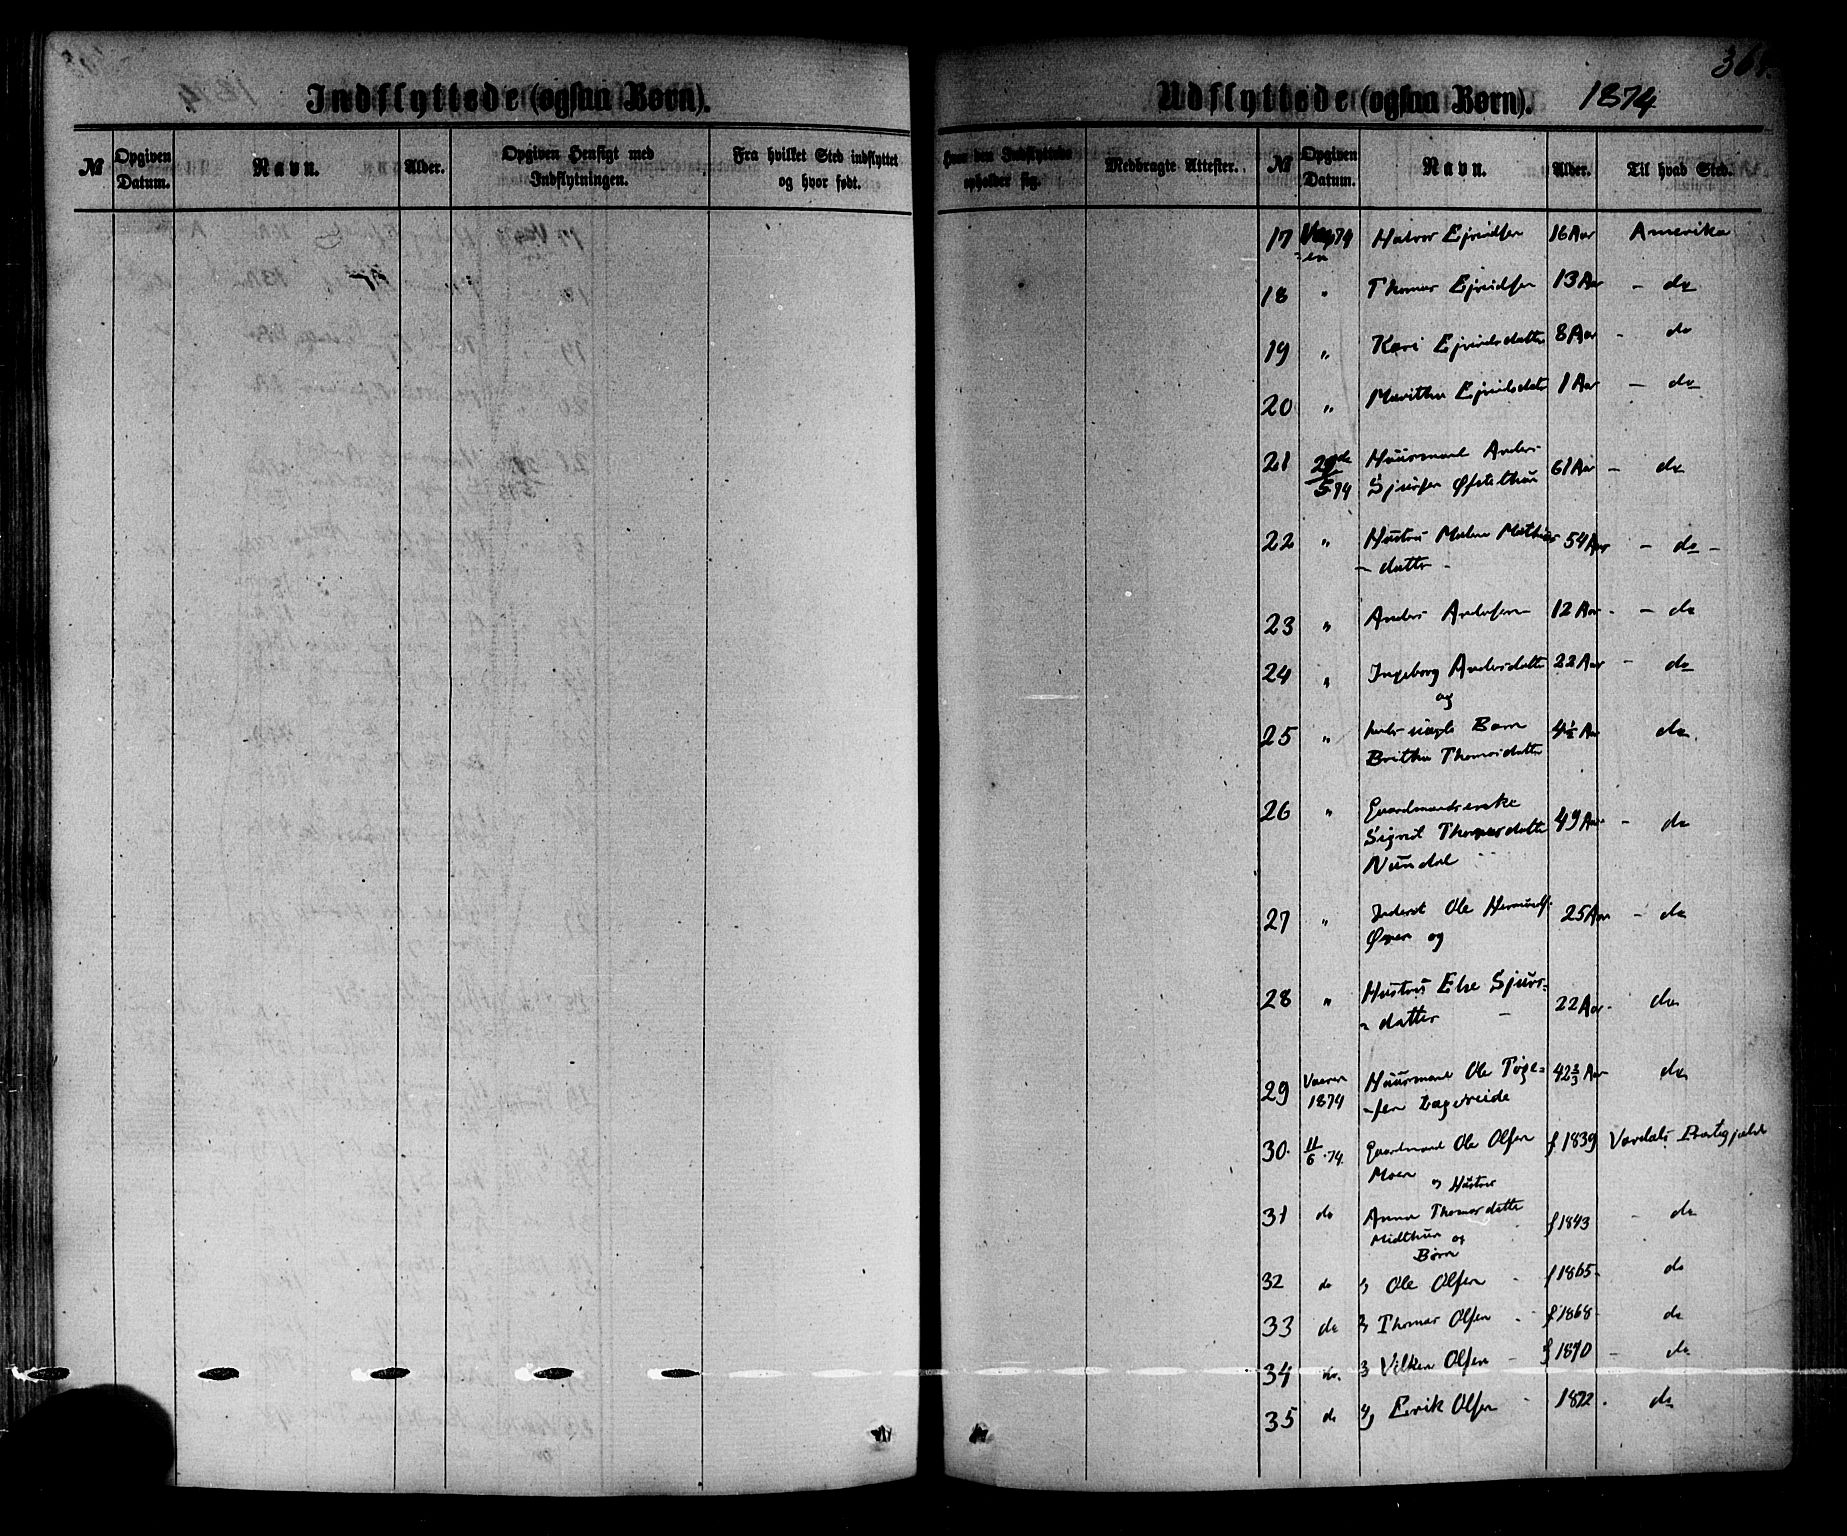 Indflyttede (ogsaa Børn).
№ Opgiven Datum. Navn. Alder. Opgiven Hensigt med Indflytningen. Fra hvilket Sted indflyttet og hvor født.
Udflyttede (ogsaa Børn). 1874
Hvor den Indflyttede opholder sig. Medbragte Attester. № Opgiven Datum. Navn. Alder. Til hvad Sted.
17 Halvor Ejvindsen 16 Aar Amerika
18 " Thomas Ejvindsen 13 Aar - do
19 " Kari Ejvindsdatter 8 Aar - do
20 " Maritha Ejvindsdatter 1 Aar - do
21 5 74 Huusmand Anders
Sjursen Øfstethun 61 Aar - do
22 " Hustru Malene Mathias
- datter - 54 Aar - do -
23 " Anders Andersen 12 Aar - - do
24 " Ingeborg Andersdatter 22 Aar - do
og
25 " uægte Barn 4½ Aar do
Britha Thomasdatter
26 " Gaardmandsenke
Sigrid Thomasdatter 49 Aar - do
Nundal
27 " Inderst Ole Hermunds. 25 Aar - do
Øren og
28 " Hustru Else Sjurs-
datter 22 Aar - do
29 Vaaren 1874 Huusmand Ole Tøge- 42⅔ Aar do
-sen
30. 11/6 .74. Gaardmand Ole Olsen f 1839 Vardals Præstegjeld
Moen
og Hustru
31 do Anna Thomasdatter f 1843 - do
Midthun og
Børn
32 do Ole Olsen - f 1865 - do
33 do Thomas Olsen - f 1868 - do
34 do. 3 Vilken Olsen - f 1870 - do
35 do 4, Erik Olsen - 1872. do